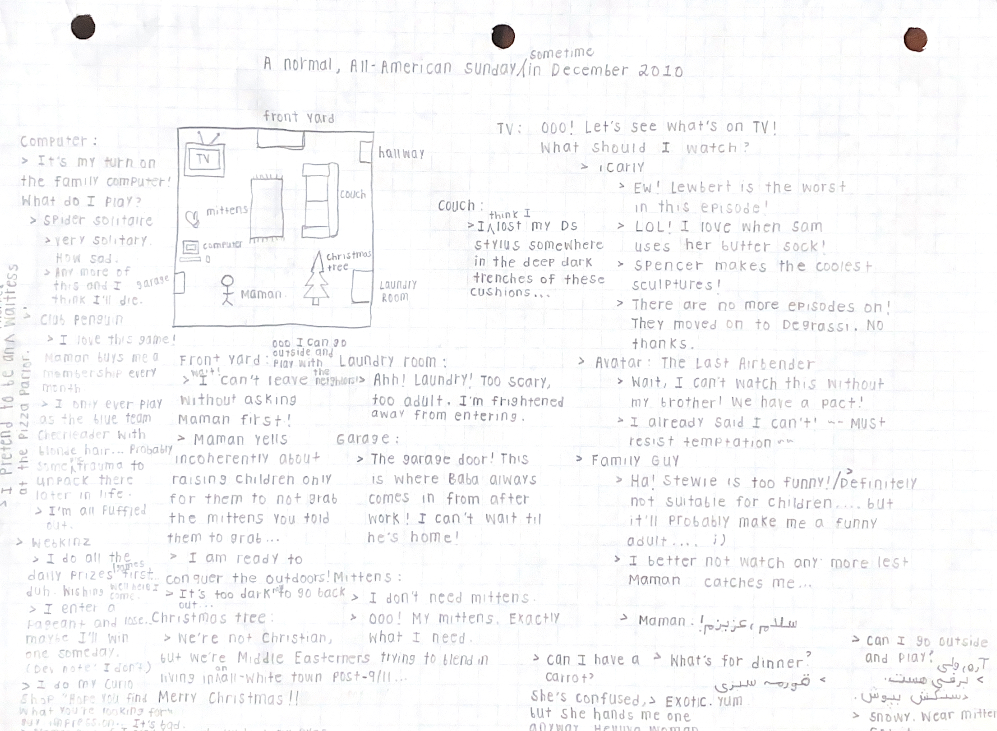 A normal, All-American Sunday/in sometime December 2010
front yard
TV
hallway
couch
mittens
computer
Christmas
tree
garage
Maman
Laundry
Room
Computer:
> It's my turn on
the family computer!
What do I play?
> Spider Solitaire
> very solitary.
How sad.
> Any more of
this and I
think I'll die.
Club Penguin
> I love this game!
Maman buys me a
membership every
month
> I only ever play
as the blue team
cheerleader with
blonde hair... Probably
some trauma to
unpack there
later in life.
> I'm an Puffled
out.
> Webkinz
> I do all the
daily prizes games first,
duh. Wishing well here I
come.
> I enter a
pageant and lose..
maybe I'll win
one someday.
(Dev note: I don't)
> I do my Curio
Shop "Hope you find
what you're looking for"
impression. It's bad.
> I Pretend to be an Waitress
at the Pizza Parlor.
Front yard: ooo I can go
outside and
play with
the neighbors
> wait! I can't leave
without asking
Maman first!
> Maman yells
incoherently about
raising children only
for them to not grab
the mittens you told
them to grab...
> I am ready to
conquer the outdoors!
> It's too dark to go back
out...
Christmas tree:
> We're not Christian,
but we're Middle Easterners trying to blend in
living in an all-White town post-9/11...
Merry Christmas!!
Laundry room:
> Ahh! Laundry! Too scary,
too adult. I'm frightened
away from entering.
Garage:
> The garage door! This
is where Baba always
comes in from after
work! I can't wait til
he's home!
Mittens:
> I don't need mittens.
> OOO! My mittens. Exactly
what I need.
Couch:
> I think I lost my DS
stylus somewhere
in the deep dark
trenches of these
cushions...
TV: OOO! Let's see what's on TV!
What should I watch?
> iCarly
> Ew! Lewbert is the worst
in this episode!
> LOL! I love when Sam
uses her butter sock!
> Spencer makes the coolest
sculptures!
> There are no more episodes on!
They moved on to Degrassi. No
thanks.
> Avatar: The Last Airbender
> Wait, I can't watch this without
my brother! We have a pact!
> I already said I can't! ~~ MUST
resist temptation ~~
> Family Guy
> Ha! Stewie is too funny!/Definitely
not suitable for children.... but
it'll probably make me a funny
adult.... ;)
> I better not watch any more lest
Maman catches me...
> Maman. سلام، عزیزم!
> Can I have a
carrot?
She's confused,
but she hands me one
anyway. Helluva woman
> What's for dinner?
> قورمه سبزی
> Exotic. Yum
> Can I go outside
and play?
> آره، ولی
برفی هست.
دستکش بپوش.
> Snowy. Wear mitten